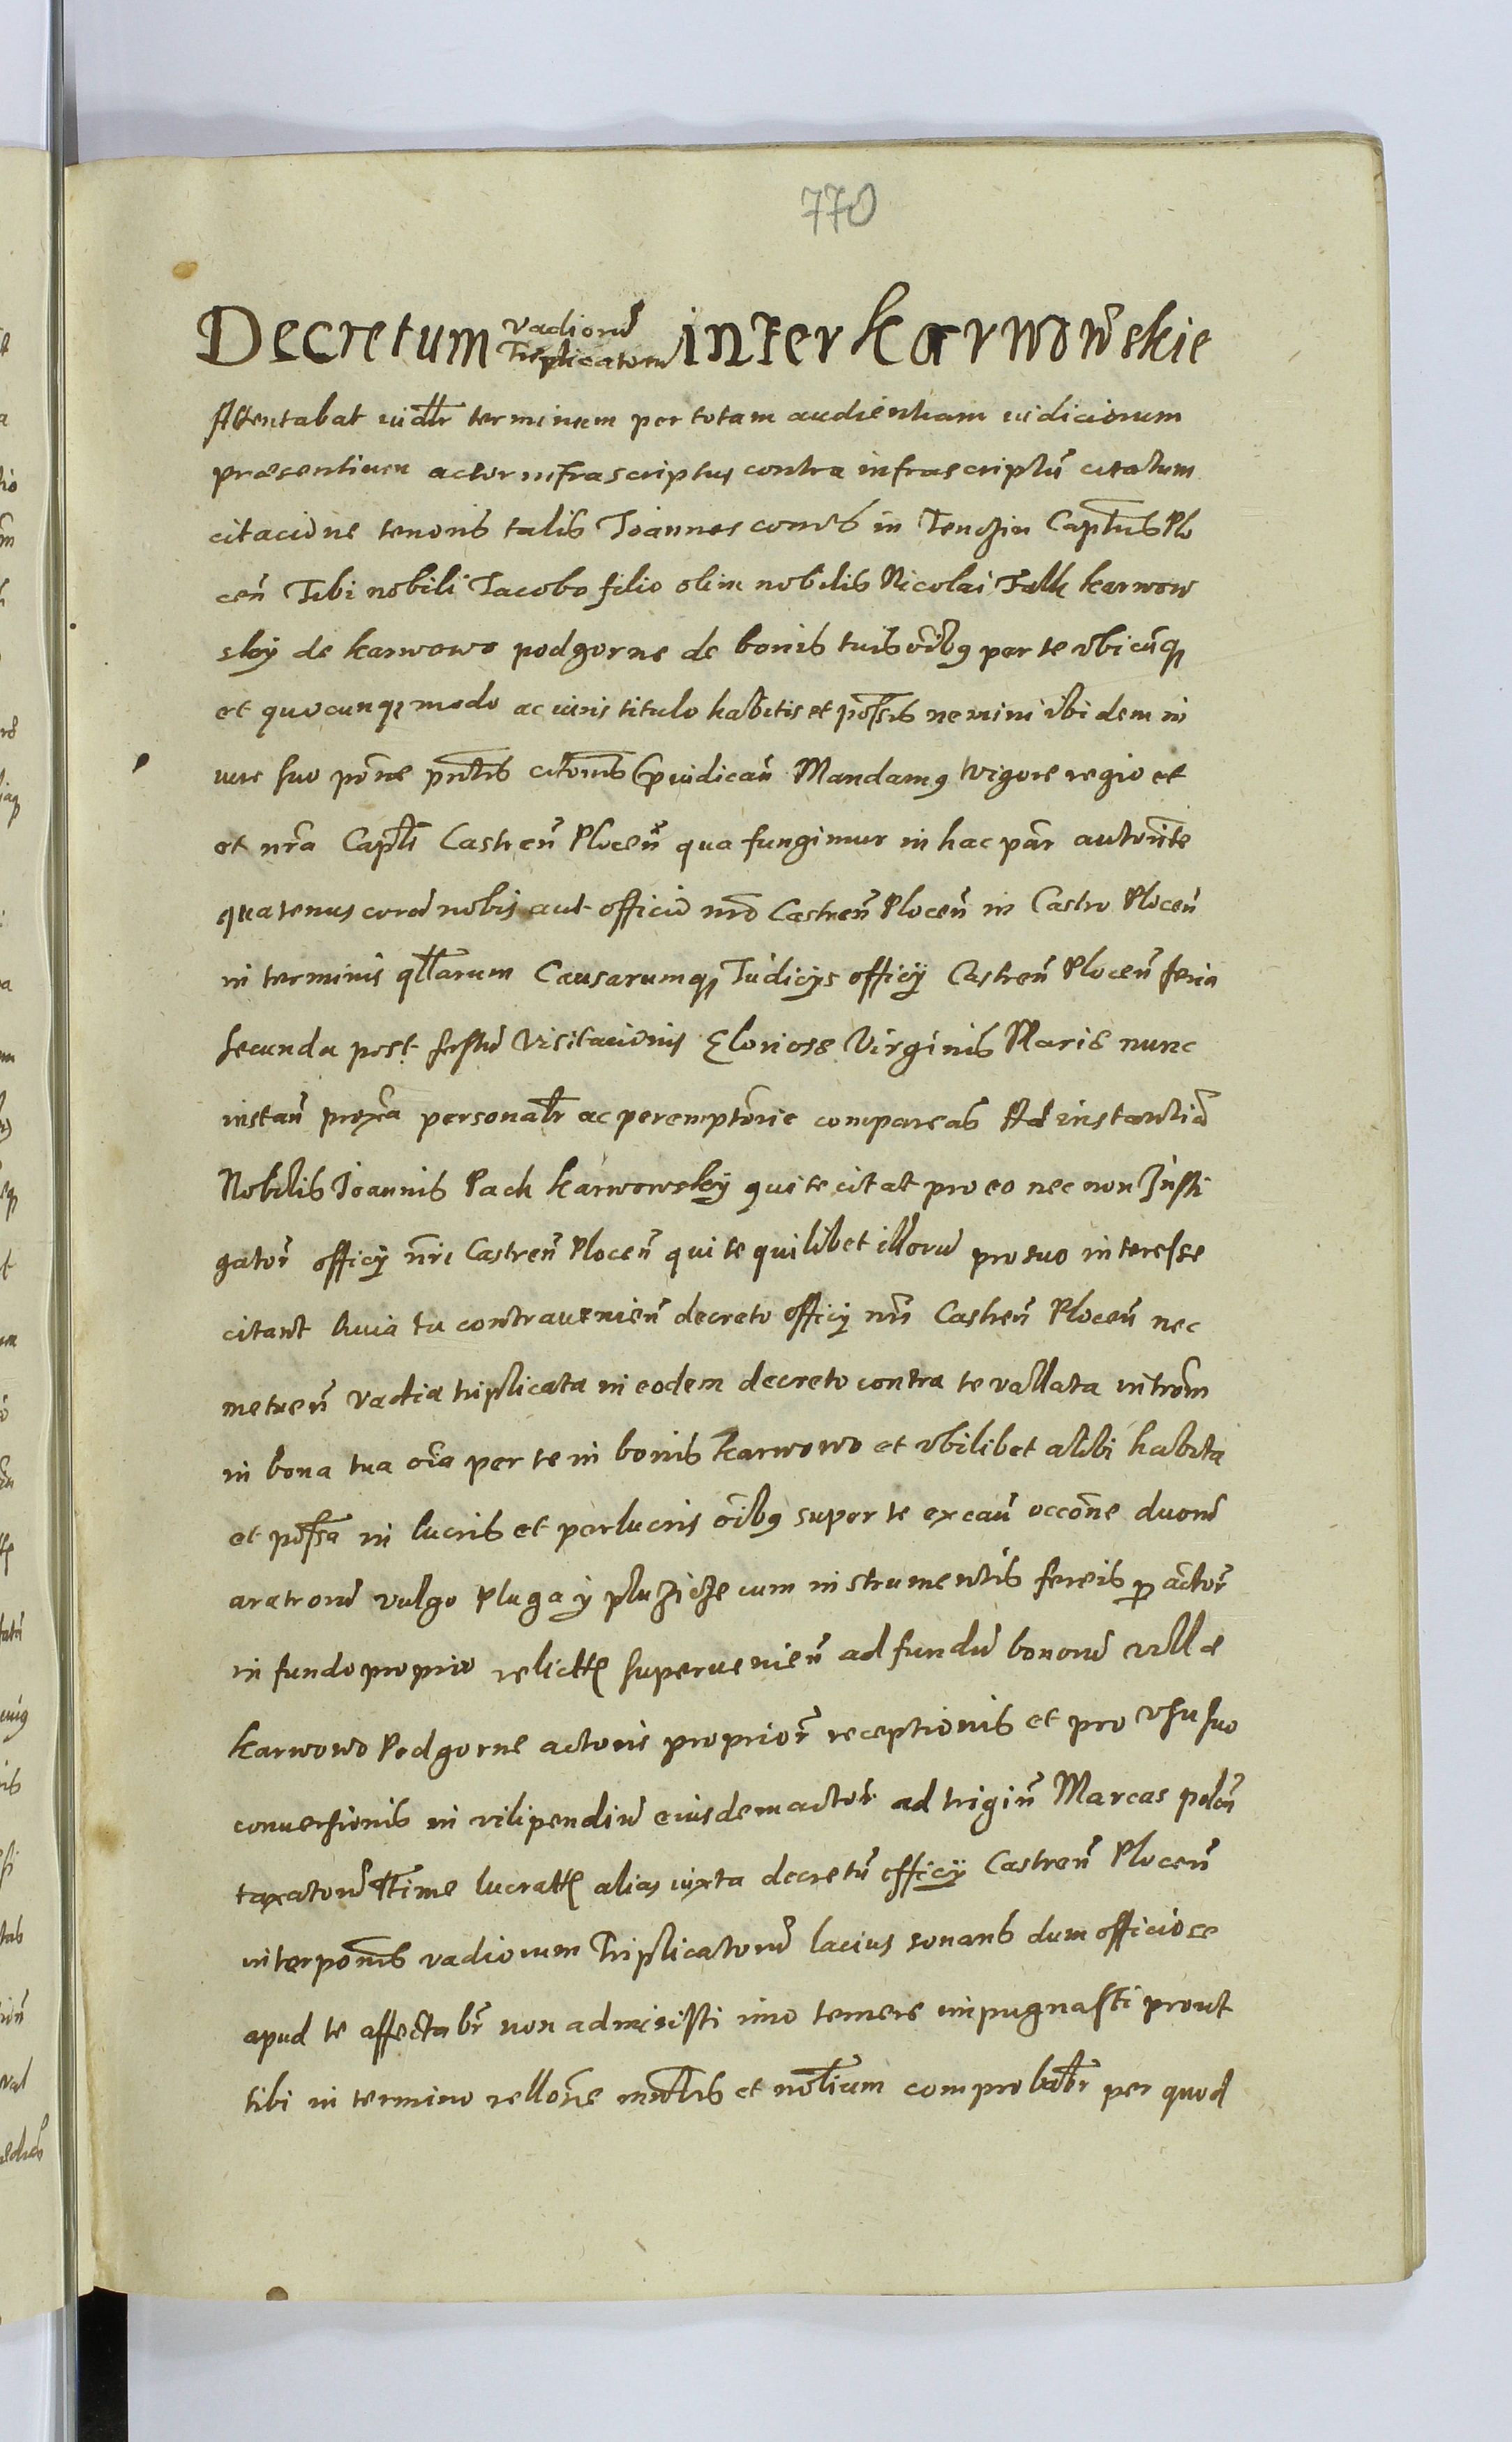 770
Decretum vadiorū Triplicatorū inter Karwowskie
Attentabat iudtr terminum per totam audientiam iudiciorum
praesentium actor infrascriptus contra infrascriptū citatum
citacione tenoris talis Joannes comes in Tenczin Captneus Plo
ceñ Tibi nobili Jacobo filio olim nobilis Nicolai Falk Karwow
sky de Karwowo podgorne de bonis tuis oībq per te vbicūq
et quocunq modo ac iuris titulo habitis et poss̄is nemini ibidem in
iure suo pōne pntis citōnis preiudicañ Mandamq vigore regio et
et nrā Captli Castreñ Ploceñ qua fungimur in hac par̄ autorīte
quatenus corā nobis aut officio nrō Castreñ Ploceñ in Castro Ploceñ
in terminis qllarum Causarumq Judicys officÿ Castreñ Ploceñ feria
secunda post festū Visitacionis Gloriose Virginis Marie nunc
instañ proxa personalr ac peremptorie compareas Ad instantiā
Nobilis Joannis Pach Karwowsky qui te citat pro eo nec non Insti
gator̄ officÿ nri Castreñ Ploceñ qui te quilibet illorū pro suo interesse
citant Quia tu contraueniens̄ decreto officÿ nri Castreñ Ploceñ nec
metueñ vadia triplicata in eodem decreto contra te vallata introm̄
in bona tua oīa per te in bonis Karwowo et vbilibet alibi habita
et poss̄a in lucris et perlucris oībq super te ex cau occōne duorū
aratrorū vulgo Pluga ÿ pluzicze cum instrumentis fereis p actor̄
in fundo proprio relictt superueniēn ad fundū bonorū villae
Karwowo Podgorne actoris proprior̄ receptionis et pro vsu suo
conuersionis in vilipendiū eiusdem actor̄ ad trigiñ Marcas polon̄
taxatorū ttime lucratt alias iuxta decretū officÿ Castreñ Ploceñ
interponis̄ vadiorum Triplicatorū lacius sonans dum officiose
apud te affectabr̄ non admisisti imo temere impugnasti prout
tibi in termino rellōne mntlis et notlium comprobabr̄ per quod